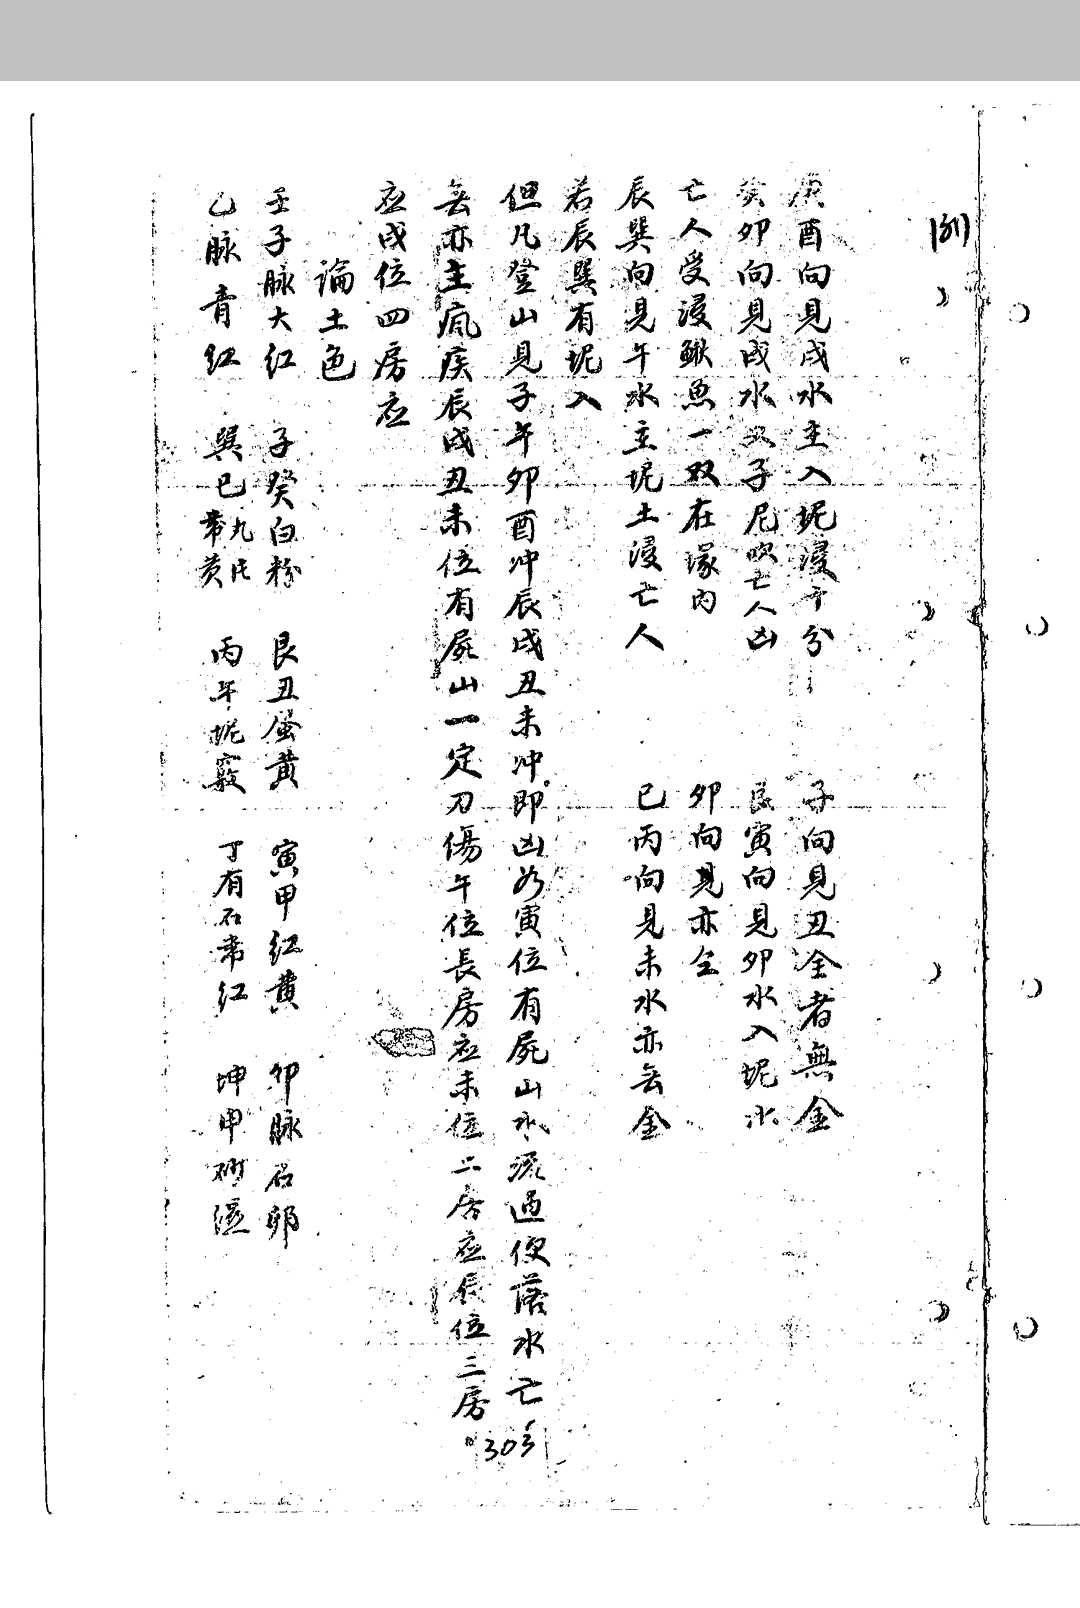 庚酉向見戌水主入坭浸十分 子向見丑全者無金
癸卯向見戌水又子尼吹亡人凶 艮寅向見卯水入坭水
亡人受浸鰍魚一双在塚內 卯向見亦全
辰巽向見午水主坭土浸亡人 巳丙向見未水亦無金
若辰巽有坭入
但凡登山見子午卯酉冲辰戌丑未冲即凶如寅位有屍山水流過便落水亡
無亦主瘋疾辰戌丑未位有屍山一定刀傷午位長房应未位二房应辰位三房
应戌位四房应
論土色
壬子脉大红 子癸白粉 艮丑蛋黃 寅甲红黃 卯脉石卵
乙脉青红 巽巳带黄 丙午坭竅 丁有石带红 坤申砂湿
303